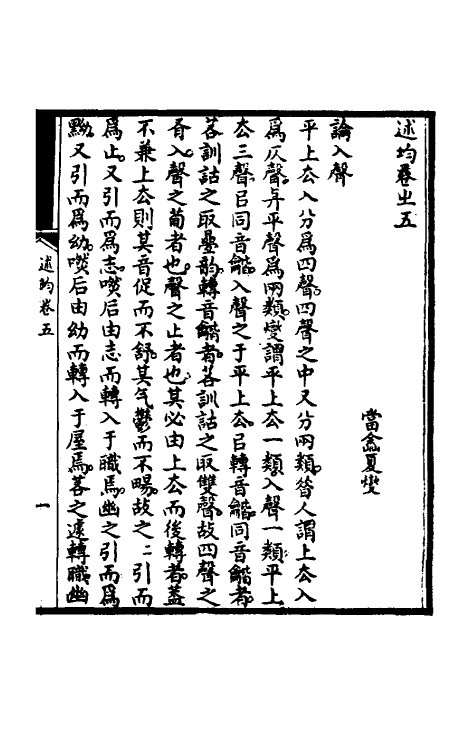 述均卷㞢五
當塗夏燮
論入聲
平上去入分爲四聲四聲之中又分兩類昔人謂上去入
爲仄聲與平聲爲兩類燮謂平上去一類入聲一類平上
去三聲㠯同音諧入聲之于平上去㠯轉音諧同音諧者
若訓詁之取疊韵轉音諧者若訓詁之取雙聲故四聲之
有入聲之者也聲之止者也其必由上去而後轉者蓋
不兼上去則其音促而不舒其气鬱而不暢故之二引而
爲止又引而爲志嘫后由志而轉入于職焉幽之引而爲
黝又引而爲幼嘫后由幼而轉入于屋焉若之遽轉職幽
述均卷五
一